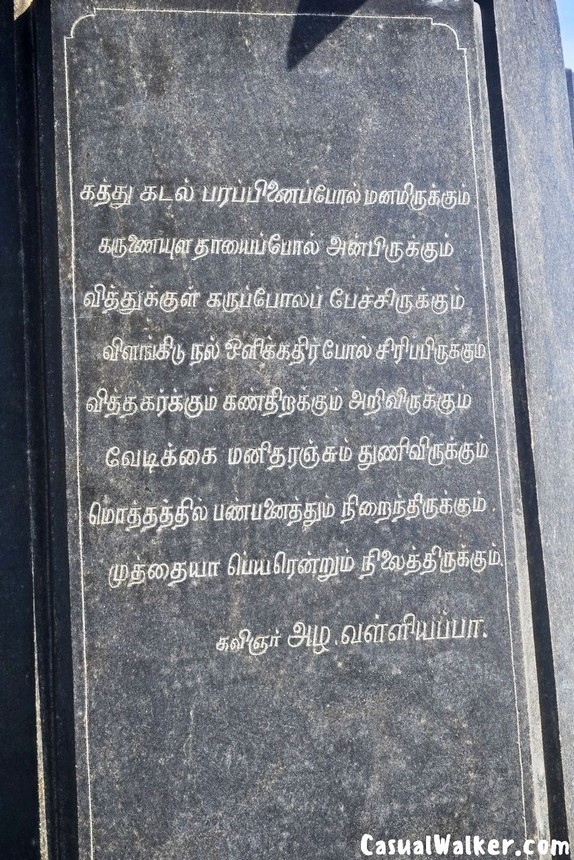 கத்து கடல் பரப்பினைப்போல் மனமிருக்கும்
கருணையுள தாயைப்போல் அன்பிருக்கும்
வித்துக்குள் கருப்போலப் பேச்சிருக்கும்
விளங்கிடு நல் ஒளிக்கதிர்போல் சிரிப்பிருக்கும்
வித்தகர்க்கும் கண்திறக்கும் அறிவிருக்கும்
வேடிக்கை மனிதரஞ்சும் துணிவிருக்கும்
மொத்தத்தில் பண்பனைத்தும் நிறைந்திருக்கும்.
முத்தையா பெயரென்றும் நிலைத்திருக்கும்.
கவிஞர் அழ.வள்ளியப்பா.
CasualWalker.com